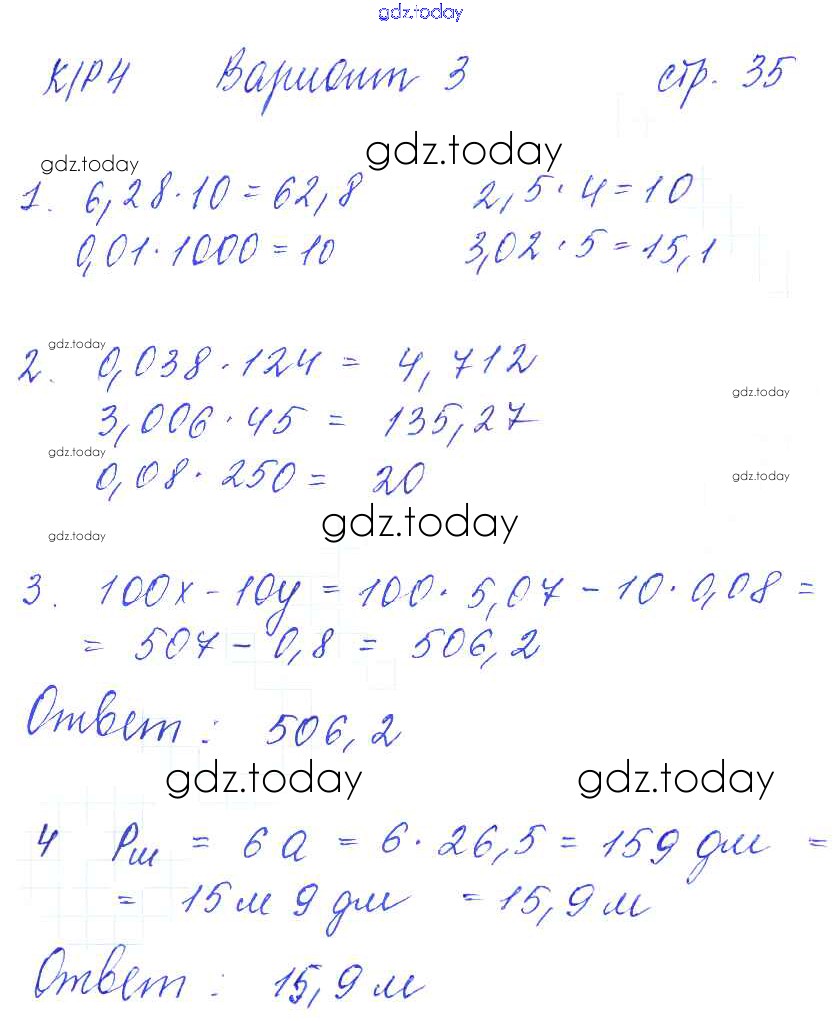 gdz.today
К/Р4 Вариант 3 стр. 35
gdz.today gdz.today
1. 6,28·10=62,8 2,5·4=10
0,01·1000=10 3,02·5=15,1
gdz.today
2. 0,038·124= 4,712
gdz.today
3,006·45= 135,27
gdz.today
0,08·250= 20
gdz.today
gdz.today
gdz.today
3. 100x-10y=100·5,07-10·0,08=
= 507-0,8= 506,2
Ответ: 506,2
gdz.today gdz.today
4 Pш = 6a = 6·26,5=159 дм =
= 15м 9 дм =15,9м
Ответ: 15,9м